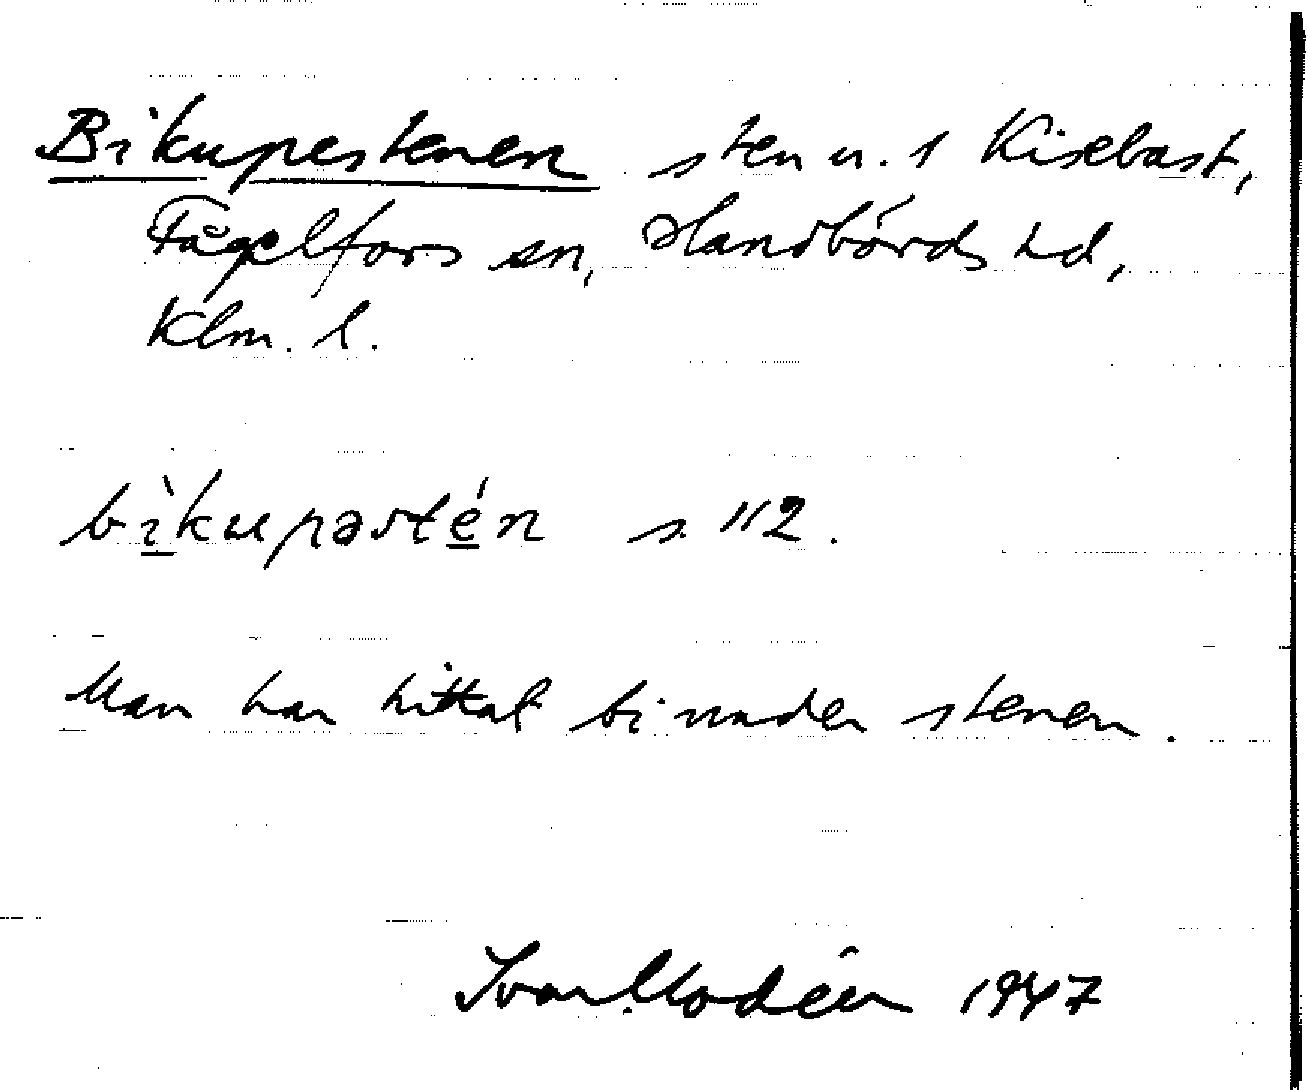 Bikupestenen sten u. 1 Kisebast,
Fågelfors sn, Handbörds hd,
Klm. l.
bìkupəstén s. 112.
Man har hittat bi under stenen.
Ivar Modéer 1947